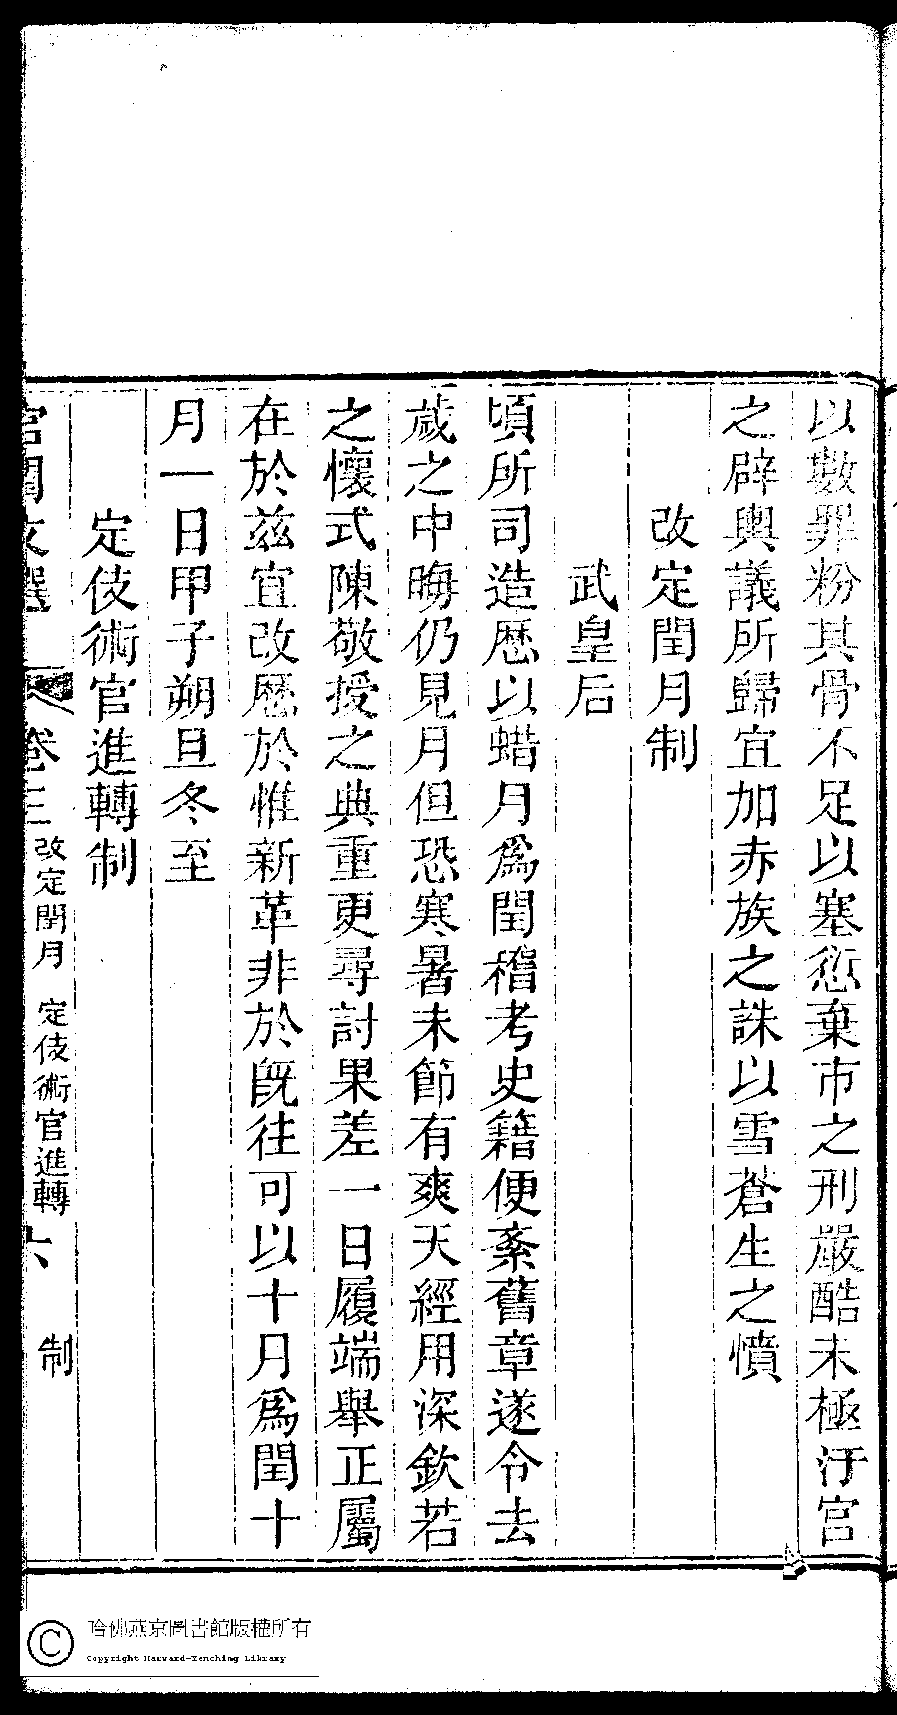 以數罪粉其骨不足以塞愆棄市之刑嚴酷未極汙宮
之辟輿議所歸宜加赤族之誅以雪蒼生之憤
改定閏月制
武皇后
頃所司造厯以蜡月爲閏稽考史籍便紊舊章遂令去
歲之中晦仍見月但恐寒暑未節有爽天經用深欽若
之懷式陳敬授之典重更尋討果差一日履端舉正屬
在於兹宜改厯於惟新革非於旣往可以十月爲閏十
月一日甲子朔旦冬至
定伎術官進轉制
宮閨文選 卷三 改定閏月 定伎術官進轉 六 制
哈佛燕京圖書館版權所有
Copyright Harvard-Yenching Library